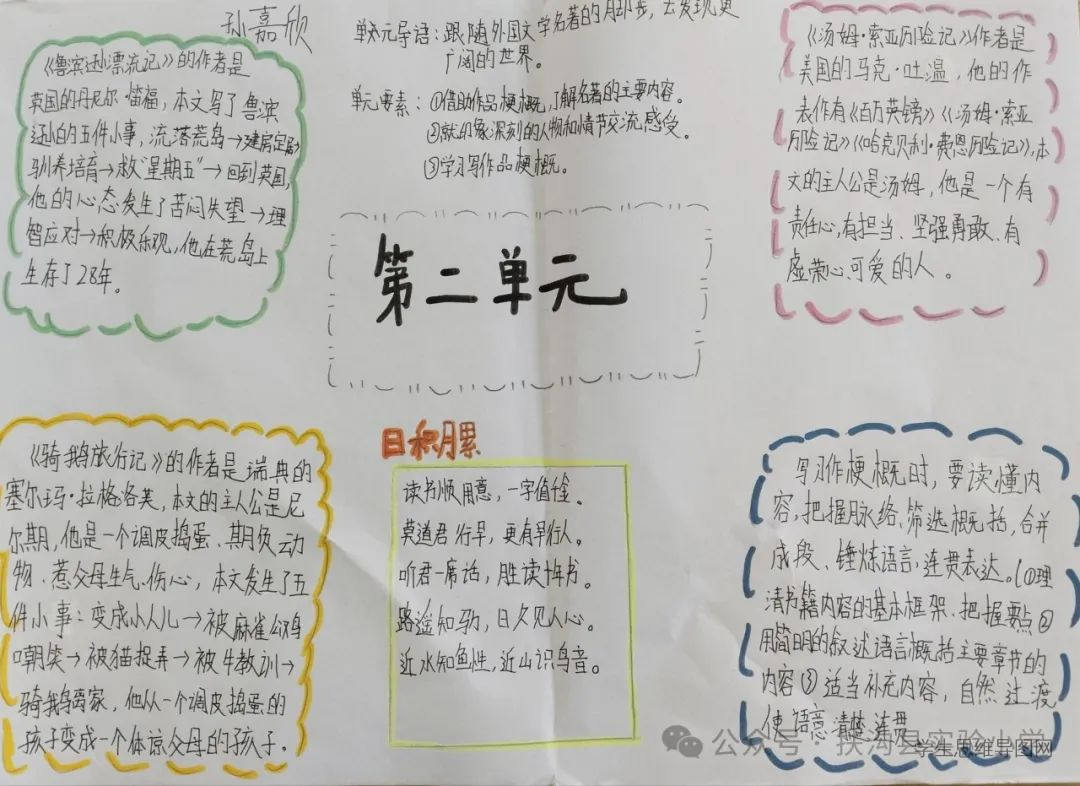 孙嘉欣
单元导语:跟随外国文学名著的脚步,去发现更
广阔的世界。
单元要素:①借助作品梗概,了解名著的主要内容。
②就印象深刻的人物和情节交流感受。
③学习写作品梗概。
《鲁滨逊漂流记》的作者是
英国的丹尼尔·笛福,本文写了鲁滨
逊的五件小事,流落荒岛→建房定居→
驯养培育→救"星期五"→回到英国,
他的心态发生了苦闷失望→理
智应对→积极乐观,他在荒岛上
生存了28年。
《汤姆·索亚历险记》作者是
美国的马克·吐温,他的作
表作有《百万英镑》《汤姆·索亚
历险记》《哈克贝利·费恩历险记》,本
文的主人公是汤姆,他是一个有
责任心,有担当、坚强勇敢、有
虚荣心、可爱的人。
第二单元
《骑鹅旅行记》的作者是瑞典的
塞尔玛·拉格洛芙,本文的主人公是尼
尔期,他是一个调皮捣蛋、期负动
物、惹父母生气、伤心,本文发生了五
件小事:变成小人儿→被麻雀公鸡
嘲笑→被猫捉弄→被牛教训→
骑鹅离家,他从一个调皮捣蛋的
孩子变成一个体谅父母的孩子。
日积月累
读书须用意,一字值千金。
莫道君行早,更有早行人。
听君一席话,胜读十年书。
路遥知马力,日久见人心。
近水知鱼性,近山识鸟音。
写作梗概时,要读懂内
容,把握脉络、筛选概括,合并
成段、锤炼语言,连贯表达。(①理
清书籍内容的基本框架、把握要点②
用简明的叙述语言概括主要章节的
内容③适当补充内容,自然过渡
使语意清楚连贯
公众号·扶沟县实验小学
学生思维导图网